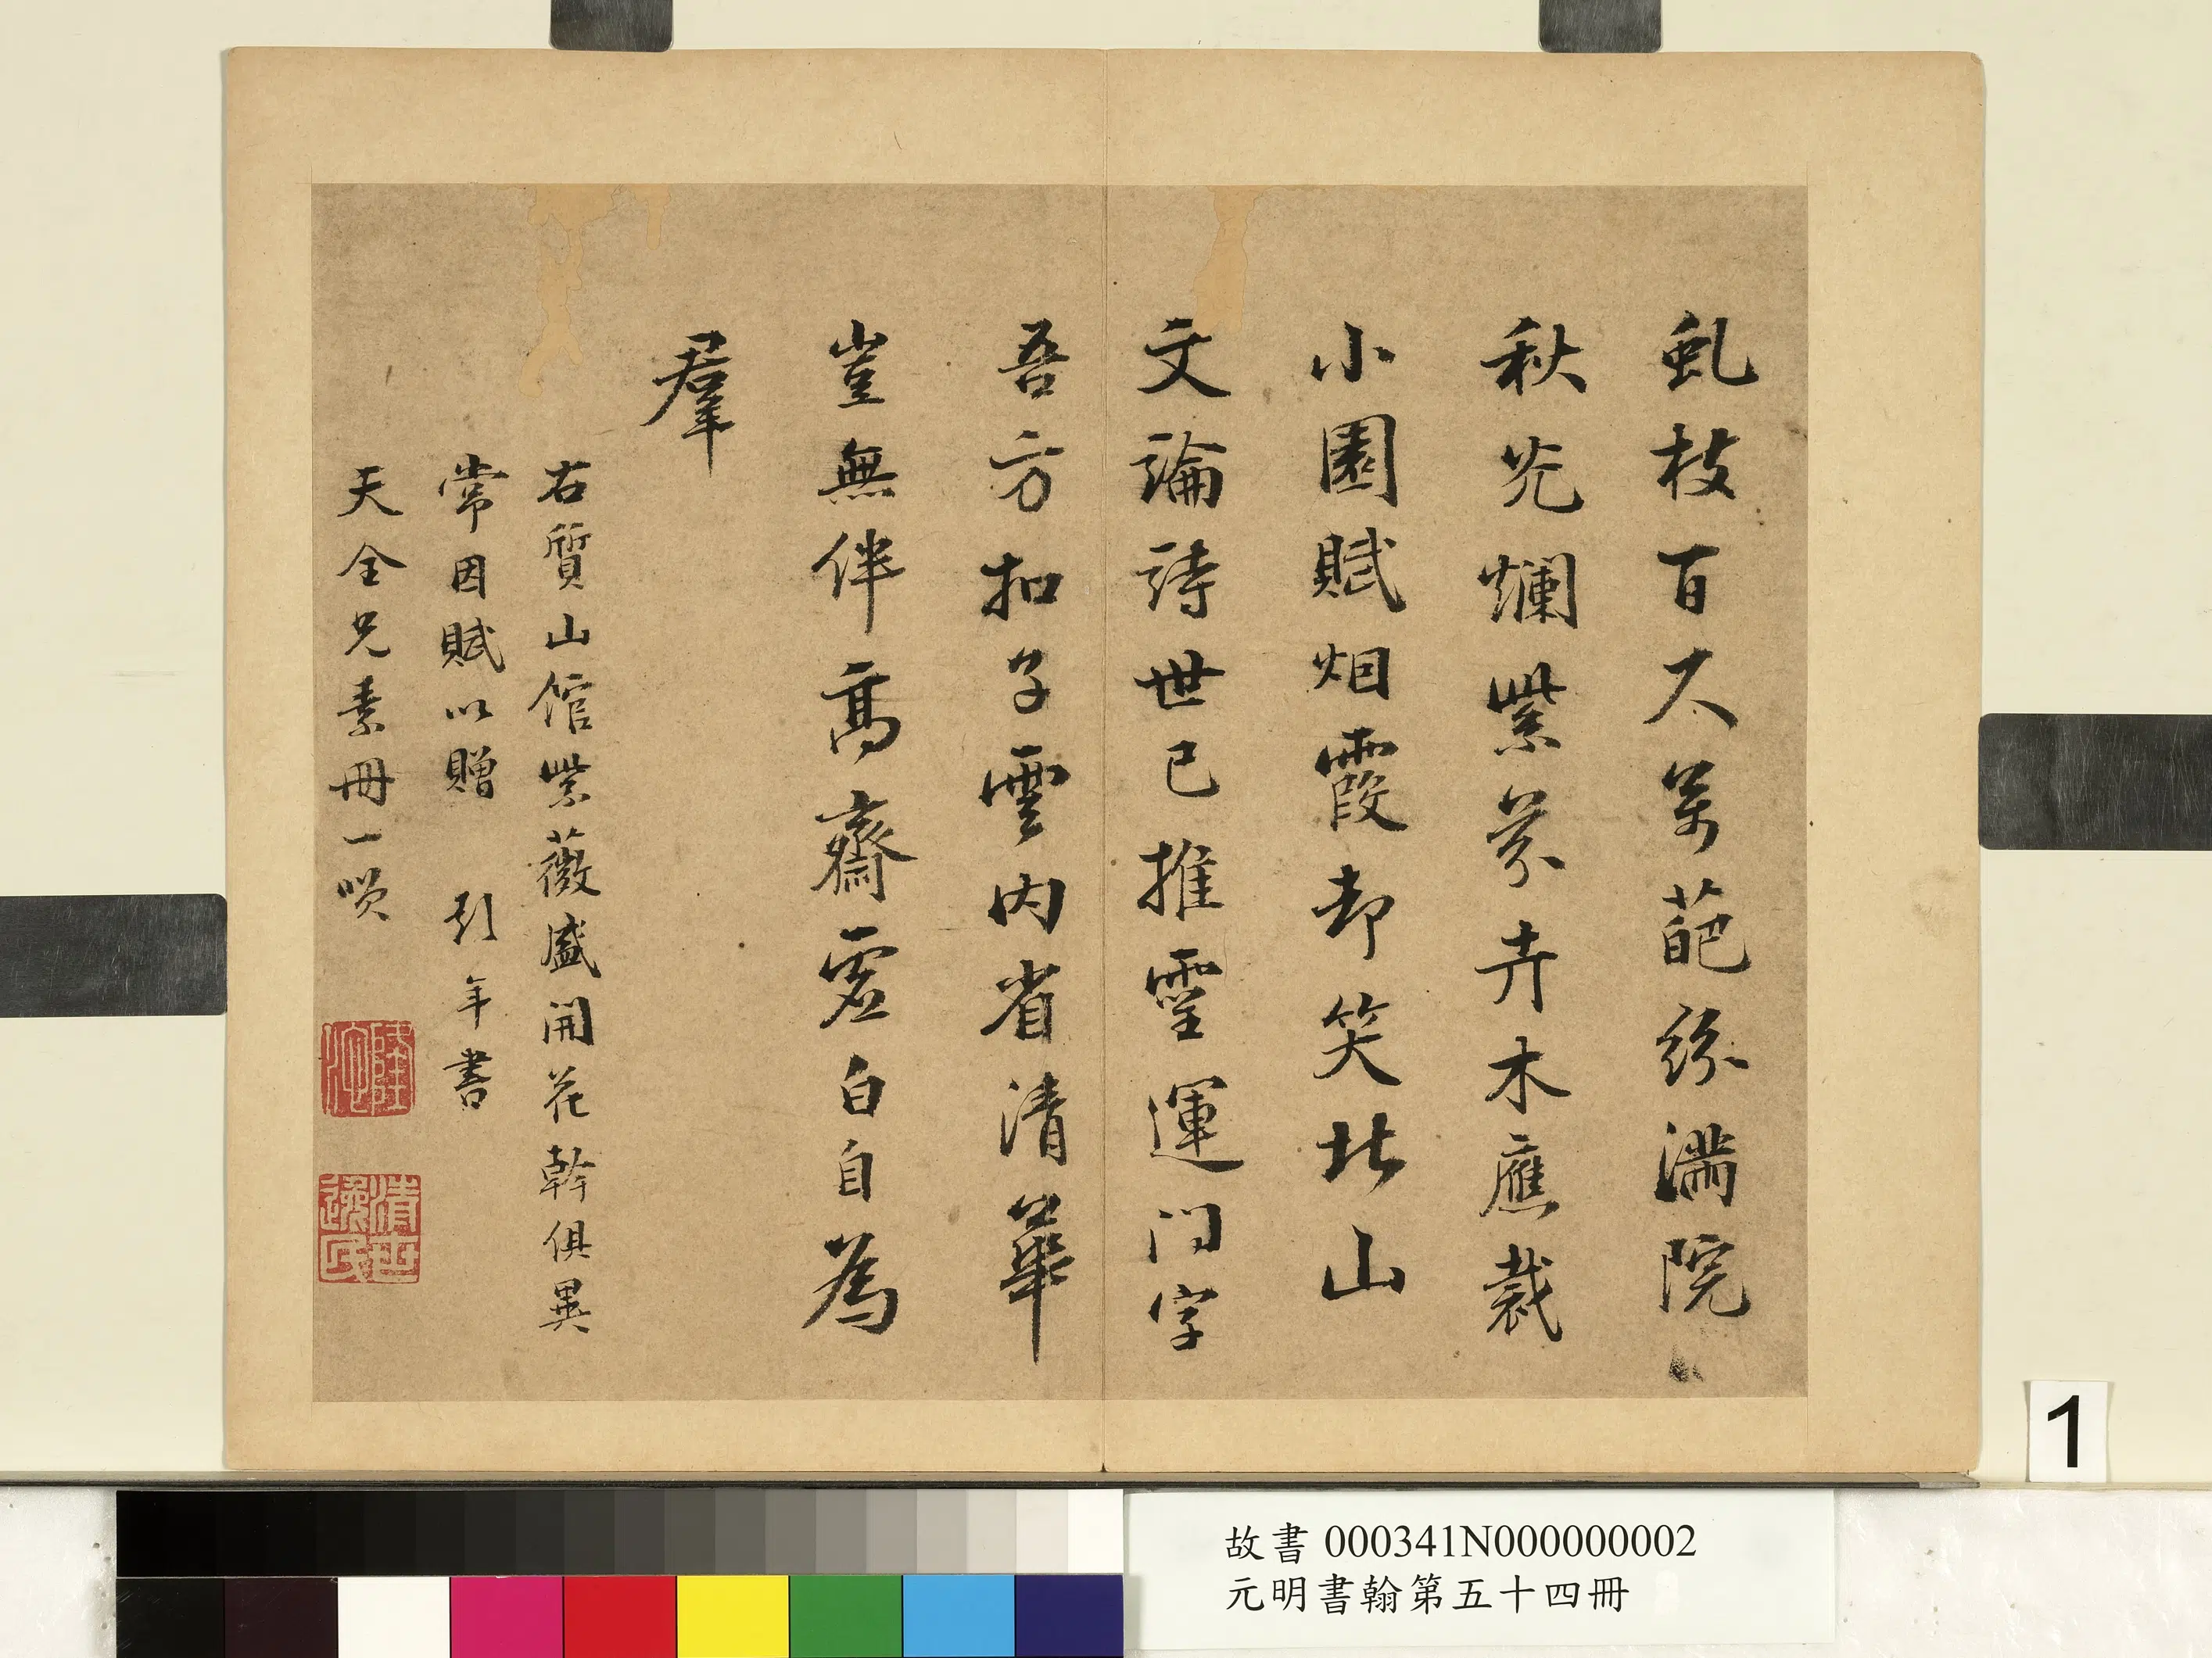 虬枝百尺萬葩紛滿院
秋光爛紫芬卉木應裁
小園賦烟霞却笑北山
文論詩世已推靈運門字
吾方扣子雲內省清華
豈無伴高齋虛白自為
羣
右質山館紫薇盛開花幹俱異
常因賦以贈 彭年書
天全兄素冊一咲
隆池
清世逸民
1
故書 000341N000000002
元明書翰第五十四冊